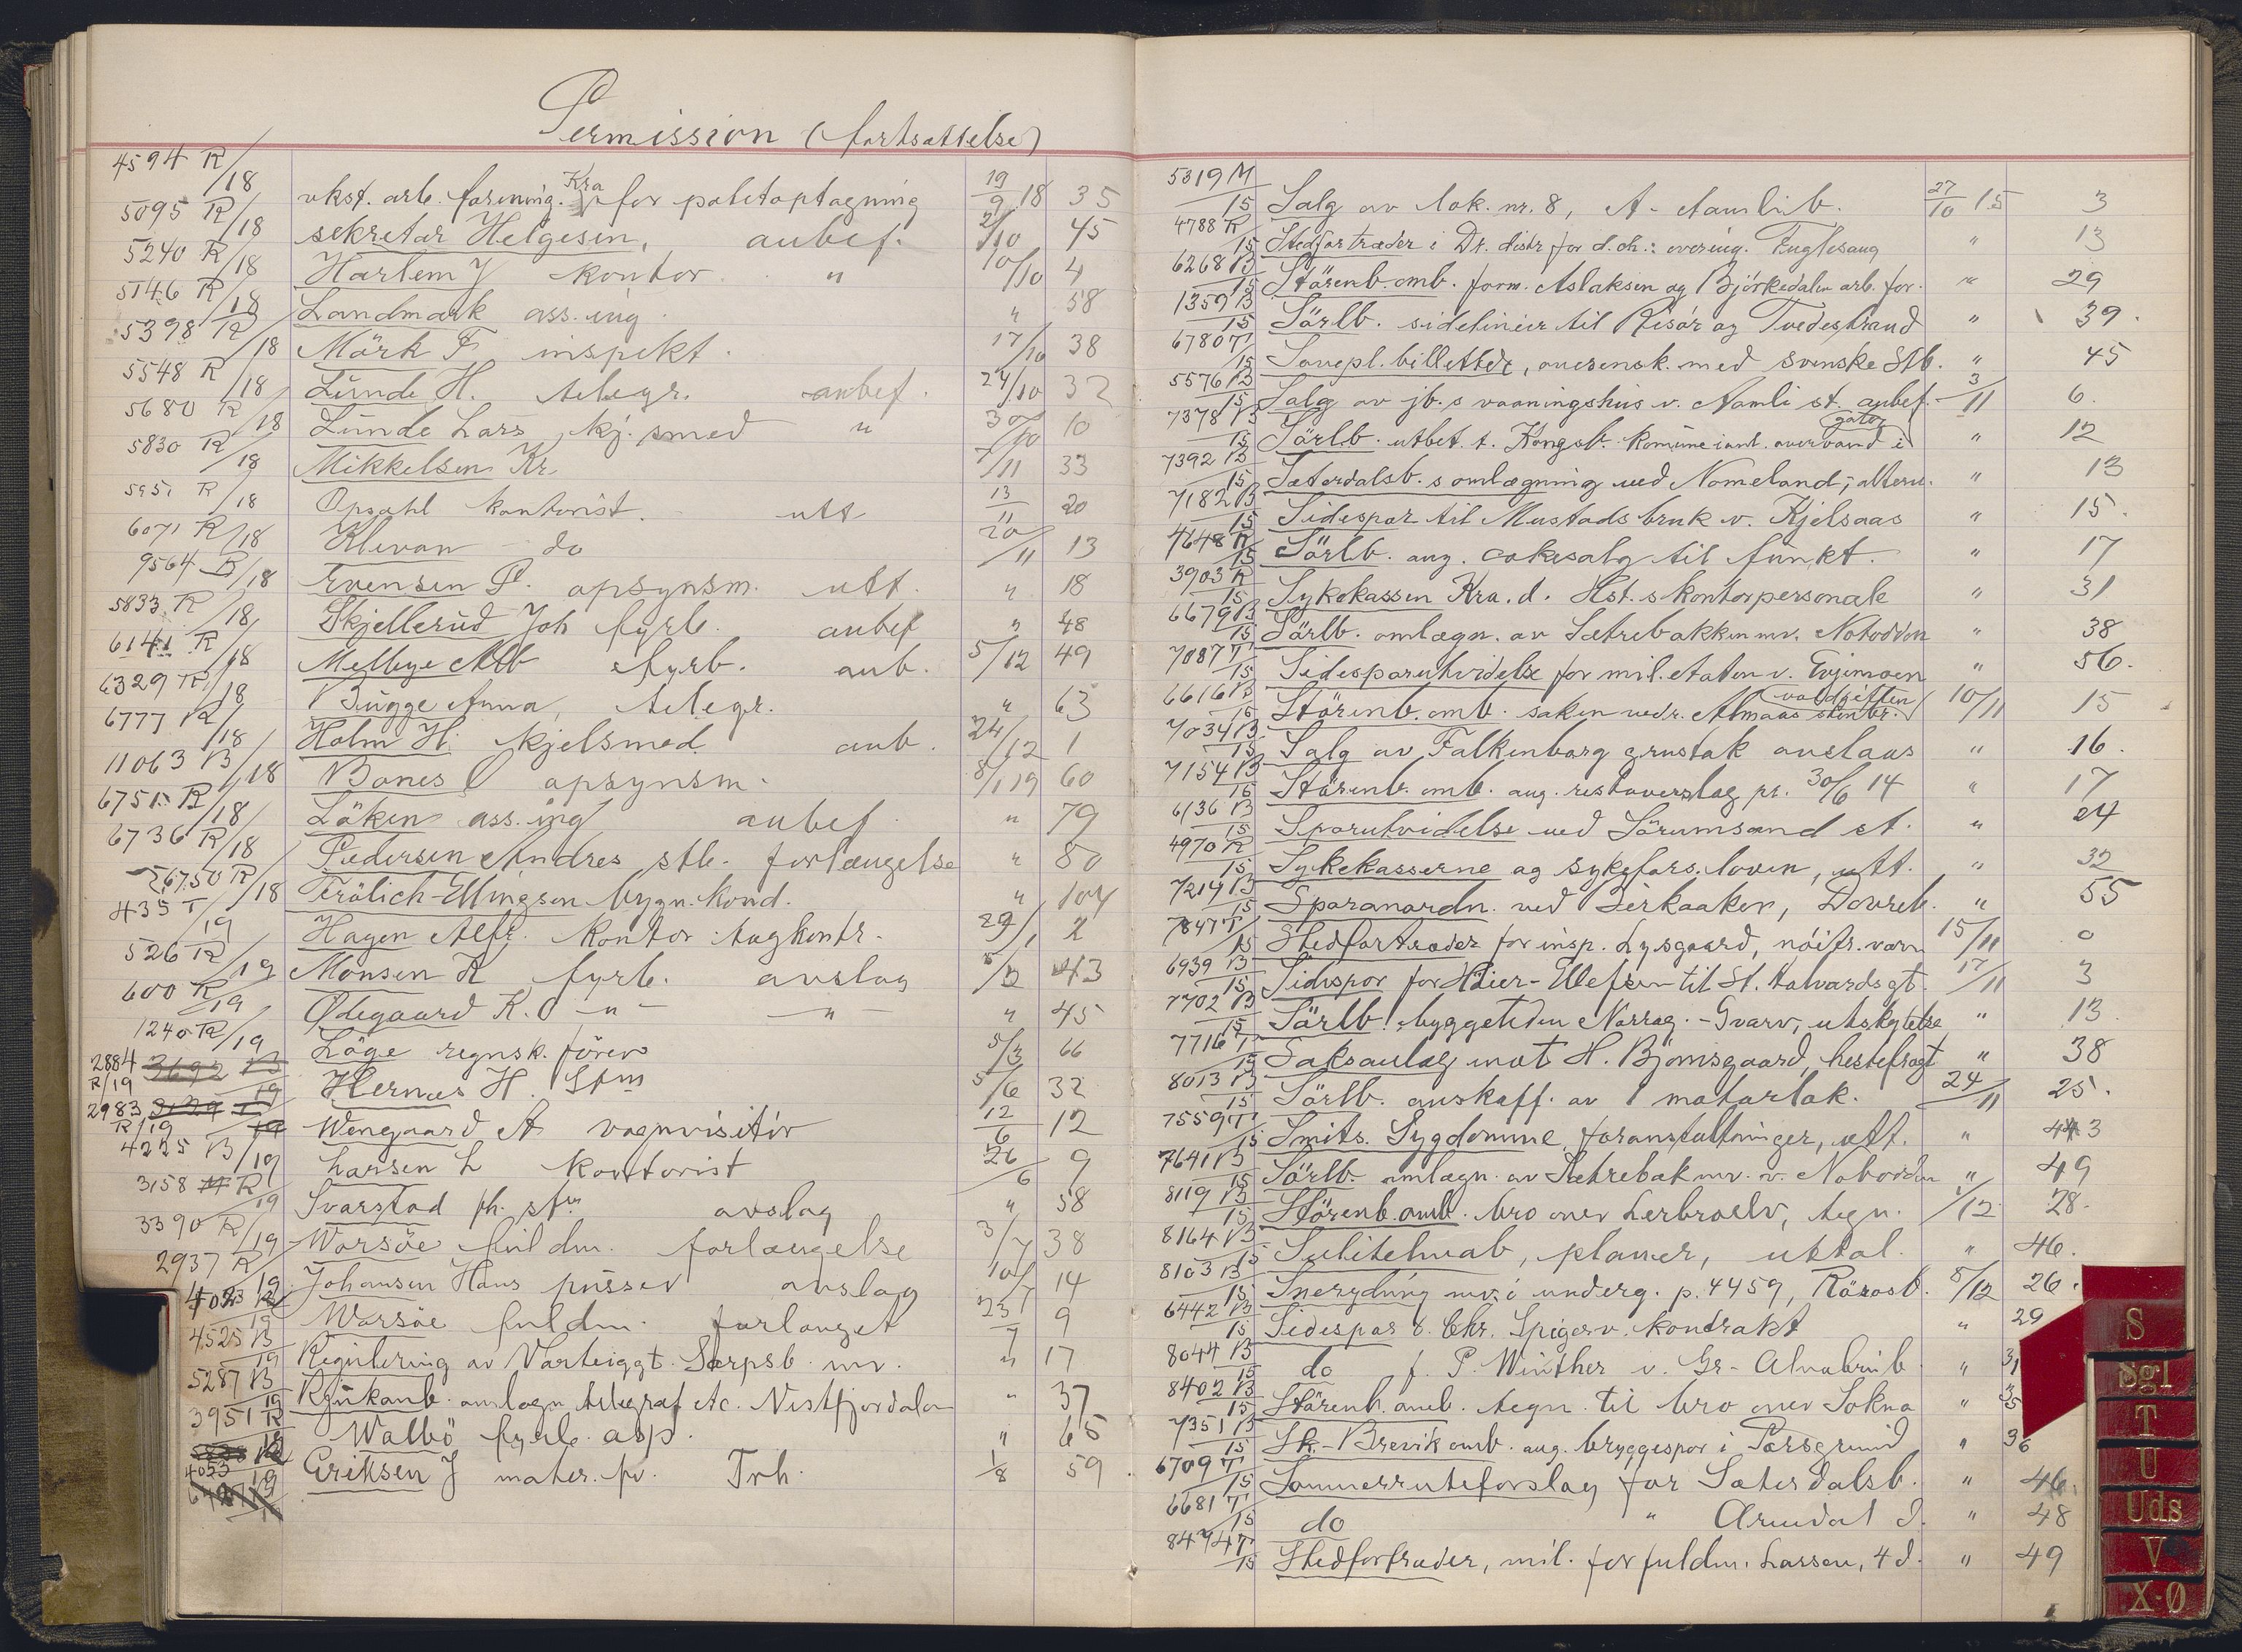 Permission (fortsættelse)
4594 R/18 vkst. arb. forening. Kra for paletoptagning 19/9 18 35
5095 R/18 sekretær Helgesen, anbef. 2/10 45
5240 R/18 Harlem J kontor " 10/10 4
5146 R/18 Landmark ass. ing. " 58
5398 R/18 Mörk F inspekt. 17/10 38
5548 R/18 Lunde H. telegr. anbef. 24/10 32
5680 R/18 Lunde Lars, kj. smed " 30/10 10
5830 R/18 Mikkelsen Kr. 7/11 33
5951 R/18 Opsahl kontorist. utt 13/11 20
6071 R/18 Klevan do 20/11 13
9564 B/18 Evensen P. opsynsm. utt. " 18
5833 R/18 Skjellerud Joh fyrb. anbef " 48
6141 R/18 Melbye Alb fyrb. anb. 5/12 49
6329 R/18 Bugge Anna, telegr. " 63
6777 R/18 Holm H. kjelsmed anb. 24/12 1
11063 B/18 Bones O opsynsm. 8/1 19 60
6751 R/18 Löken ass. ing anbef. " 79
6736 R/18 Pedersen Andres stb. forlængelse " 80
6750 R/18 Frölich-Ellingsen bygn. kond. " 104
435 T/19 Hagen Alfr. kontor togkontr. 29/1 2
526 R/19 Monsen K fyrb. avslag 43
600 R/19 Ødegaard K. -"- -"- " 45
1240 R/19 Löge regnsk. förer 5/3 66
2884 R/19 3692 B/19 Hernæs H. Stm 5/6 32
2983 R/19 Wengaard A vognvisitör 12/6 12
4225 B/19 Larsen L kontorist 26/6 9
3158 R/19 Svarstad fh. stm avslag " 58
3390 R/19 Worsöe fuldm. forlængelse 3/7 38
2937 R/19 Johansen Hans pusser avslag 10/7 14
4023 R/19 Worsöe fuldm. forlænget 23/7 9
4525 B/19 Regulering av Varteiggt. Sarpsb. mv. " 17
5287 B/19 Rjukanb. omlægn. telegraf etc. Vestfjordalen " 37
3951 R/19 Walbö fyrb. asp. " 65
4053 Eriksen J mater. fv. Trh. 1/8 59
5319 M/15 Salg av lok. nr. 8, A-Aamlib. 27/10 15 3
4788 R/15 Stedfortræder i Dr. distr for d. ch.: overing. Fuglesang " 13
6268 B/15 Störenb. omb. form. Aslaksen og Björkedalen arb. for. " 29
1359 B/15 Sörlb. sidelinier til Risör og Tvedestrand " 39.
6780 T/15 Sovepl. billetter, overensk. med svenske Stb. " 45
5576 B/15 Salg av jb.s vaaningshus v. Namli st. anbef. 3/11 6.
7378 B/15 Sörlb. utbet. t. Kongsb. komune ianl. overvand i gater " 12
7392 B/15 Sætersdalsb.s omlægning ved Nomeland; altern. " 13
7182 B/15 Sidespor til Mustads bruk v. Kjelsaas " 15.
7648 R/15 Sörlb. ang. cokesalg til funkt. " 17
3903 R/15 Sykekassen Kra. d. Hst.s kontorpersonale " 31
6679 B/15 Sörlb. omlægn. av Sætrebakken mv. Notodden " 38
7087 T/15 Sidesporutvidelse for mil. etaten v. Evjemoen " 56.
6616 B/15 Störenb. omb. saken vedr. Almaas stenbr. voldgiften 10/11 15
7034 B/15 Salg av Falkenborg grustak avslaas " 16.
7154 B/15 Störenb. omb. ang. restoverslag pr. 30/6 14 " 17
6136 B/15 Sporutvidelse ved Sörumsand st. " 24
4970 R/15 Sykekasserne og sykefors. loven, utt. " 32
7214 B/15 Sporanordn. ved Berkaaken, Dovreb. " 55
7847 T/15 Stedfortræder for insp. Lysgaard, nöitr. værn 15/11 0
6939 B/15 Sidespor for Höier-Ellefsen til St. Halvards gt. 17/11 3
7702 B/15 Sörlb. byggetiden Norrag.-Gvarv, utskytelse " 13
7716 T/15 Saksanlæg mot H. Björnsgaard, hestefragt " 38
8013 B/15 Sörlb. anskaff. av 1 motorlok. 24/11 25.
7559 T/15 Smits. Sygdomme, foranstaltninger, utt. " 43
7641 B/15 Sörlb. omlægn. av Sætrebak mv. v. Notodden " 49
8119 B/15 Störenb. omb. bro over Lerbroelv, tegn. 1/12 28.
8164 B/15 Sulitelmab, planer, uttal. " 46.
8103 B/15 Snerydning mv. i underg. p. 4459, Rörosb. 8/12 26.
6442 B/15 Sidespor f. Chr. Spigerv. kontrakt " 29
8044 B/15 do f. P. Winther v. Gr-Alnabru b. " 31
8402 B/15 Störenb. omb. tegn. til bro over Sokna " 35
7351 B/15 Sk.-Brevik omb. ang. bryggespor i Porsgrund " 36
6709 T/15 Sommerruteforslag for Sætersdalsb. " 46.
6681 T/15 do " Arendal d. " 48
8494 T/15 Stedfortræder, mil. for fuldm. Larsen, 4 d. " 49
S
Sgl
T
U
Uds
V
X-Ø